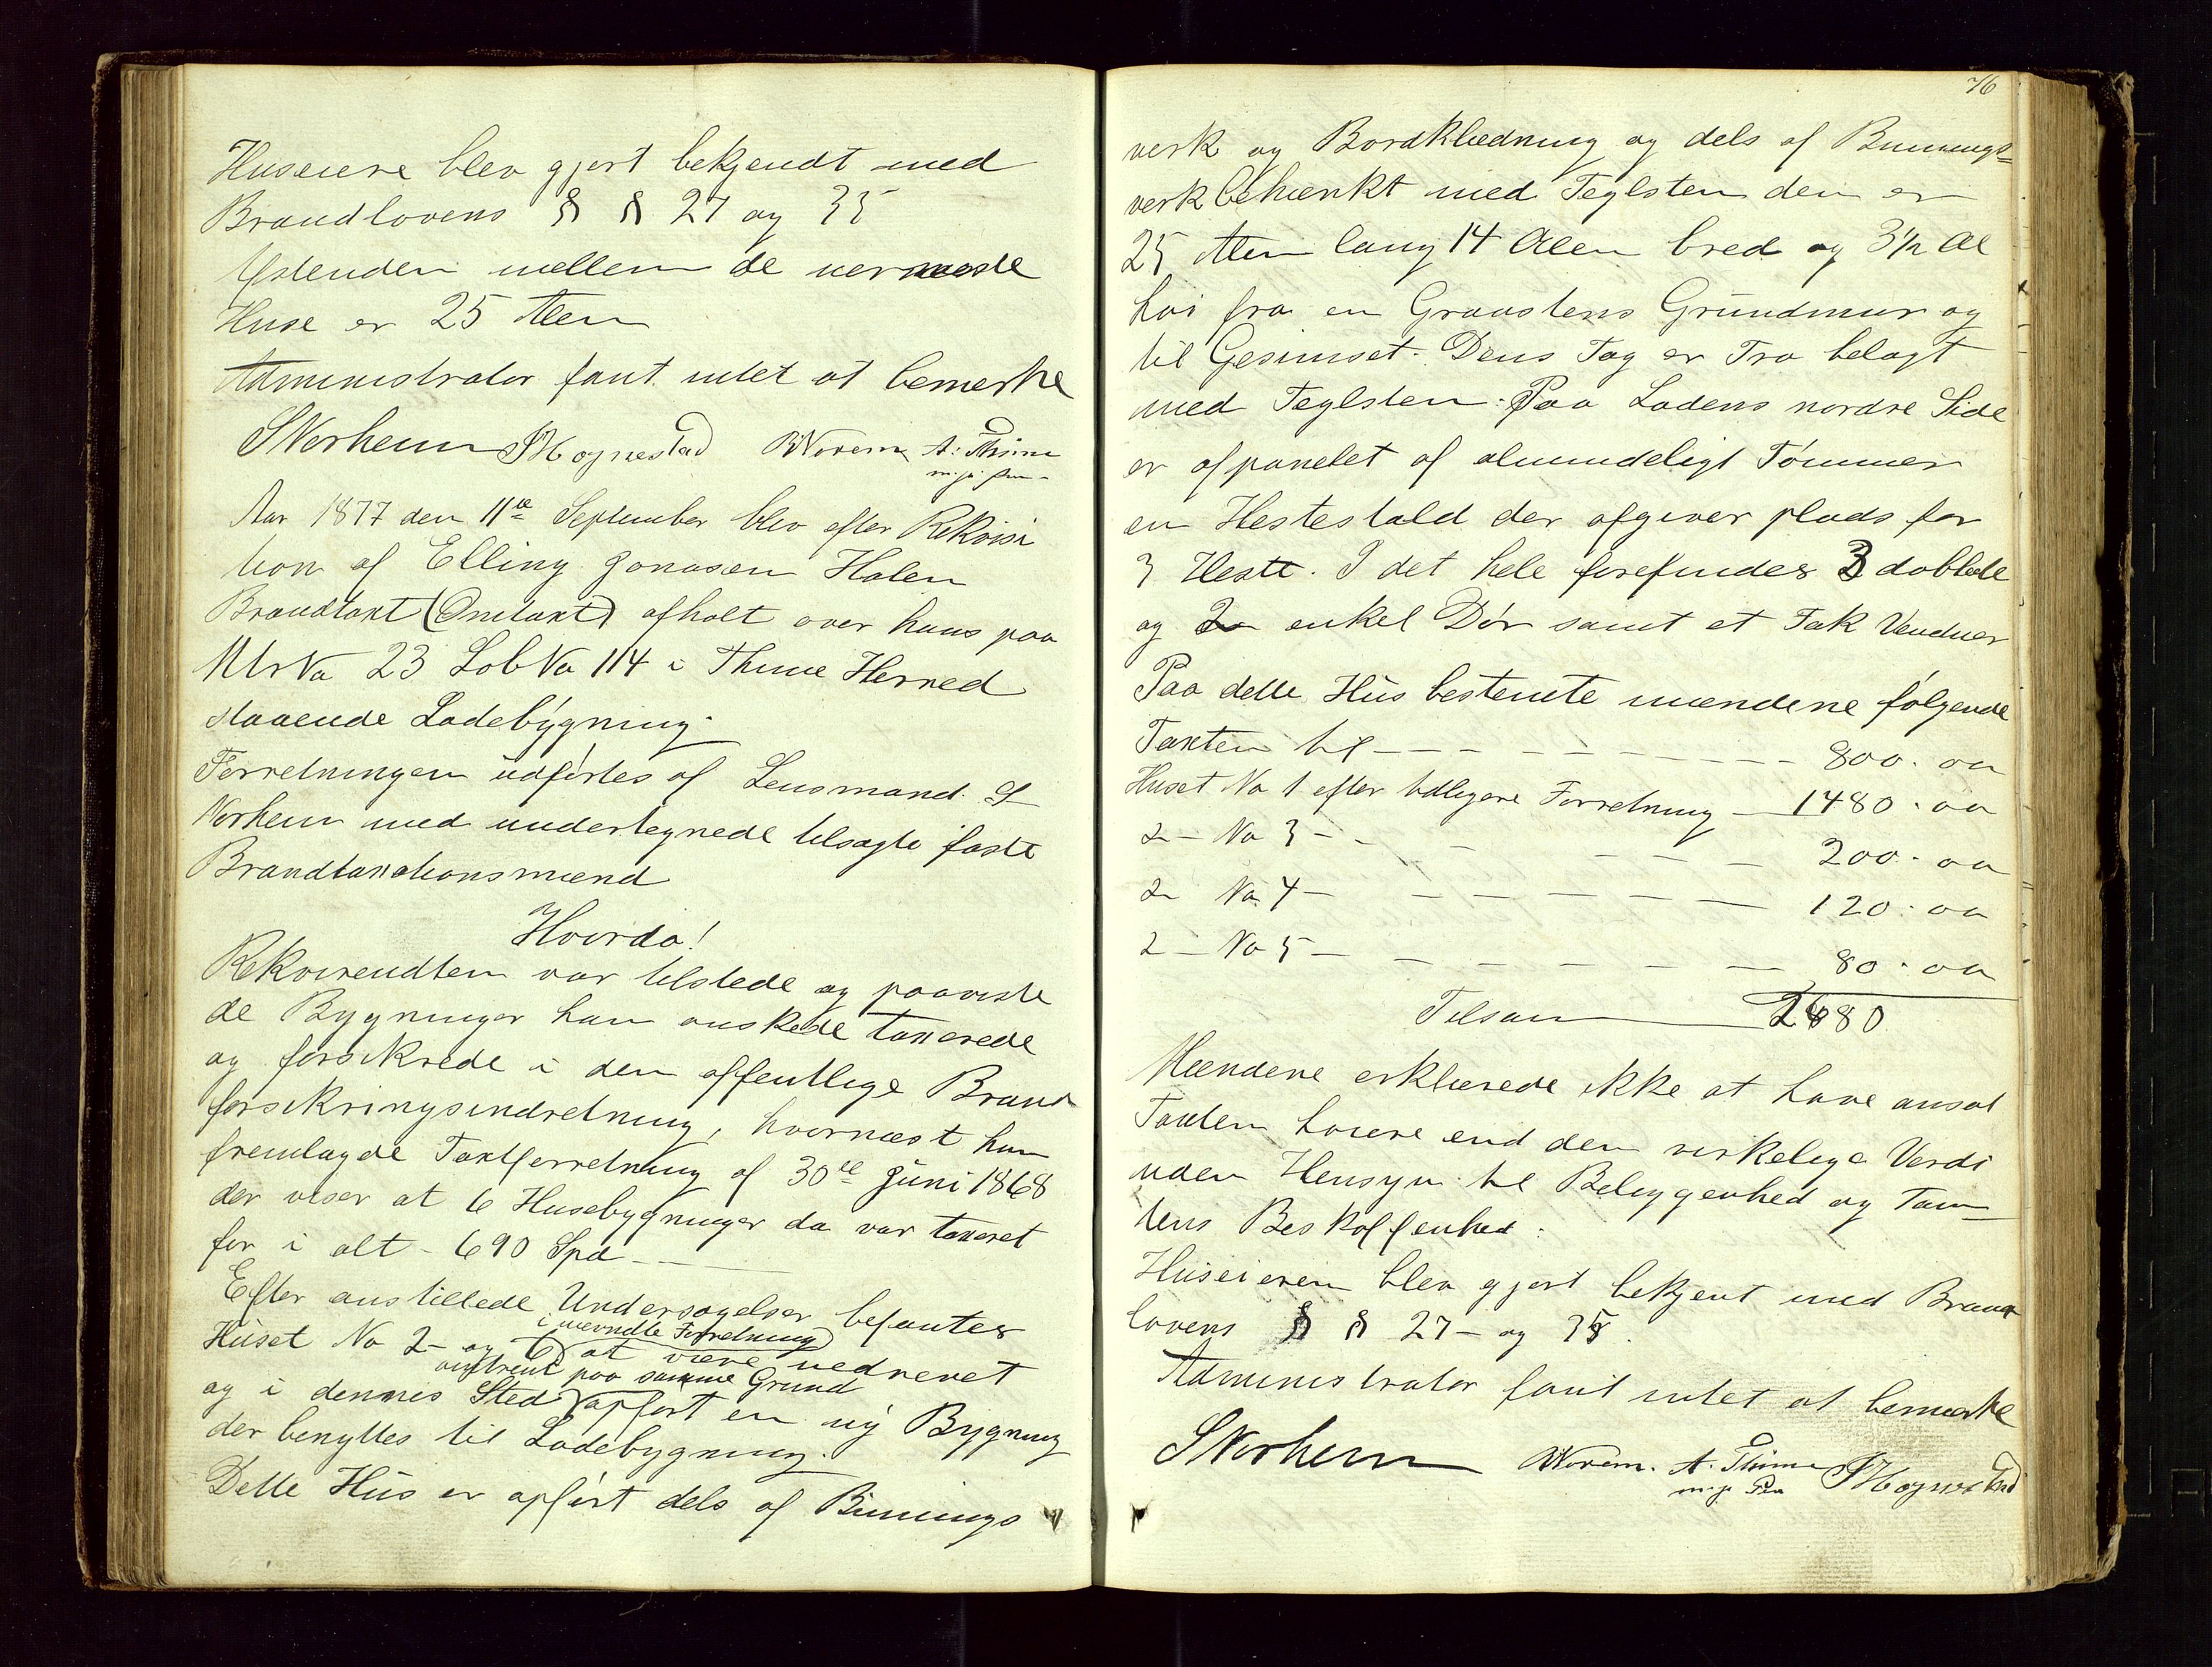 Huseiere blev gjort bekjendt med
Brandlovens § § 27 og 35
Afstenden mellem de nermeste
Huse er 25 Alen
Administrator fant intet at bemerke
S Norheim S Hognestad B Norem A: Thime
m. p. Pen
Aar 1877 den 11te September blev efter Rekvisi
tion af Elling Jonasen Halen
Brandtaxt (Omtaxt) afholt over hans paa
Mtr No 23 Løb No 114 i Thime Herred
staaende Ladebygning.
Forretningen udførtes af Lensmand S
Norheim med undertegnede tilsagte faste
Brandtaxationsmænd
Hvorda!
Rekvirendten var tilstede og paaviste
de Bygninger han ønskede taxerede
og forsikrede i den offentlige Brand
forsikringsindretning, hvornæst han
fremlagde Taxtforretning af 30te Juni 1868
der viser at 6 Husebygninger da var taxeret
for i alt - 690 Spd
Efter anstillede Undersøgelser befantes
i nævndte Forretning
Huset No 2 - og 6 at være nedrevet
omtrent paa samme Grund
og i dennes Sted opført en ny Bygning
der benyttes til Ladebygning.
Dette Hus er opført dels af Binnings
76
verk og Bordklædning og dels af Binnings=
verk behænkt med Teglsten den er
25 Alen lang 14 Alen bred og 3 1/2 Al
høi fra en Graastens Grundmur og
til Gesimset. Dens Tag er Træ belagt
med Teglsten. Paa Ladens nordre Side
er afpanelet af almindeligt Tømmer
en Hestestald der afgiver plads for
3 Heste. I det hele forefindes 3 doblede
og 2 enkel Dør samt et Fak Venduer
Paa dette Hus bestemte mændene følgende
Taxten til - - - - - - - - 800. 00
Huset No 1 efter tidligere Forretning - 1480. 00
2 - No 3 - - - - - - 200. 00
2 - No 4 - - - - - - 120. 00
2 - No 5 - - - - - - 80. 00
Tilsam 2680
Mændene erklærede ikke at have ansat
Taxten høiere end den virkelige Verdi
uden Hensyn til Beliggenhed og Tom
tens Beskaffenhed.
Huseieren blev gjort bekjent med Brand
lovens § § 27 - og 35.
Administrator fant intet at bemerke
S Norheim B Norem. A. Thime S Hognestad
m. p. Pen